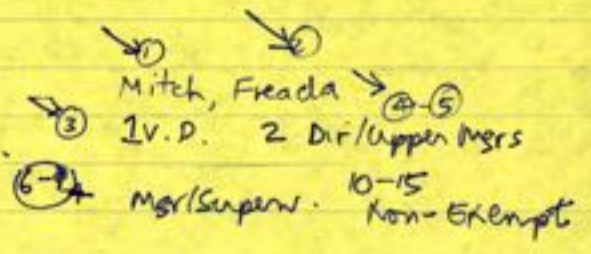 ① ②
Mitch, Freada ④-⑤
③ 1 V.P. 2 Dir/Upper Mgrs
6-9 Mgr/Superv. 10-15
Non-Exempt